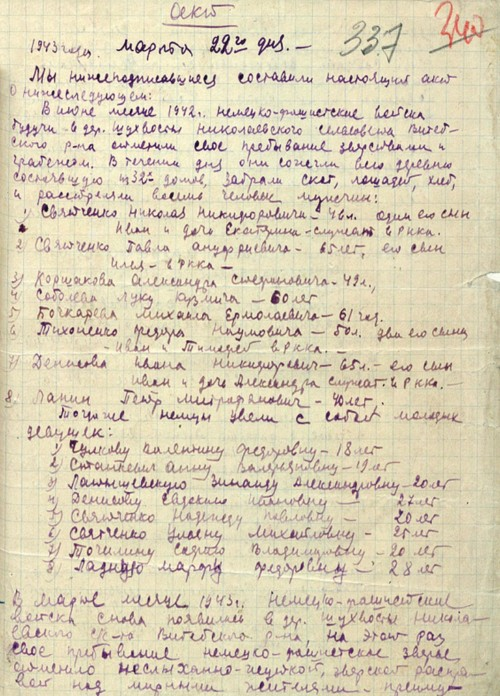 Акт
337 340
1943 года марта 22го дня. —
Мы нижеподписавшиеся составили настоящий акт
о нижеследующем:
В июне месяце 1942 г. немецко-фашистские войска
будучи в дер. Шухвосты Николаевского сельсовета Витеб-
ского р-на отменили свое пребывание зверствами и
грабежом. В течении дня они сожгли всю деревню
состоявшую из 32х домов, забрали скот, лошадей, хлеб,
и расстреляли восемь человек мужчин:
1) Святченко Николая Никифоровича — лет. один его сын
Иван и дочь Екатерина — служат в РККА.
2 Святченко Павла Андреевича — 65 лет, его сын
Илья — в РККА —
3) Коршакова Александра — 49 л.,
4) Соболева Луку Кузмича — 60 лет
5 Бочкарева Михаила Ермолаевича — 61 год.
6 Тихоненко Федора Наумовича — 50 л. два его сына
— Иван и Тимофей в РККА. —
7) Денисова Ивана Никифорович — 65 л. — его сын
Иван и дочь Александра служат в РККА. —
8. Лапин Петр Митрофанович — 40 лет.
Тогоже немцы увели с собой молодых
девушек:
1) Валентину Федоровну — 18 лет
2) Анну — 19 лет
3) Зинаиду Александровну — 20 лет
4) Денисову Ивановну — 27 лет
5) Святченко Надежду Павловну — 20 лет
6) Святченко Ульяну Михайловну — 25 лет
7) Софию Владимировну — 20 лет
8) Ладную Марфу Федоровну — 28 лет
В марте месяце 1943 г. немецко-фашистские
войска снова появились в дер. Шухвосты Никола-
евского с/с-та Витебского р-на, на этот раз
свое пребывание немецко-фашистское зверье
отменило неслыханно-жестокой, зверской распра-
вой над мирными жителями.